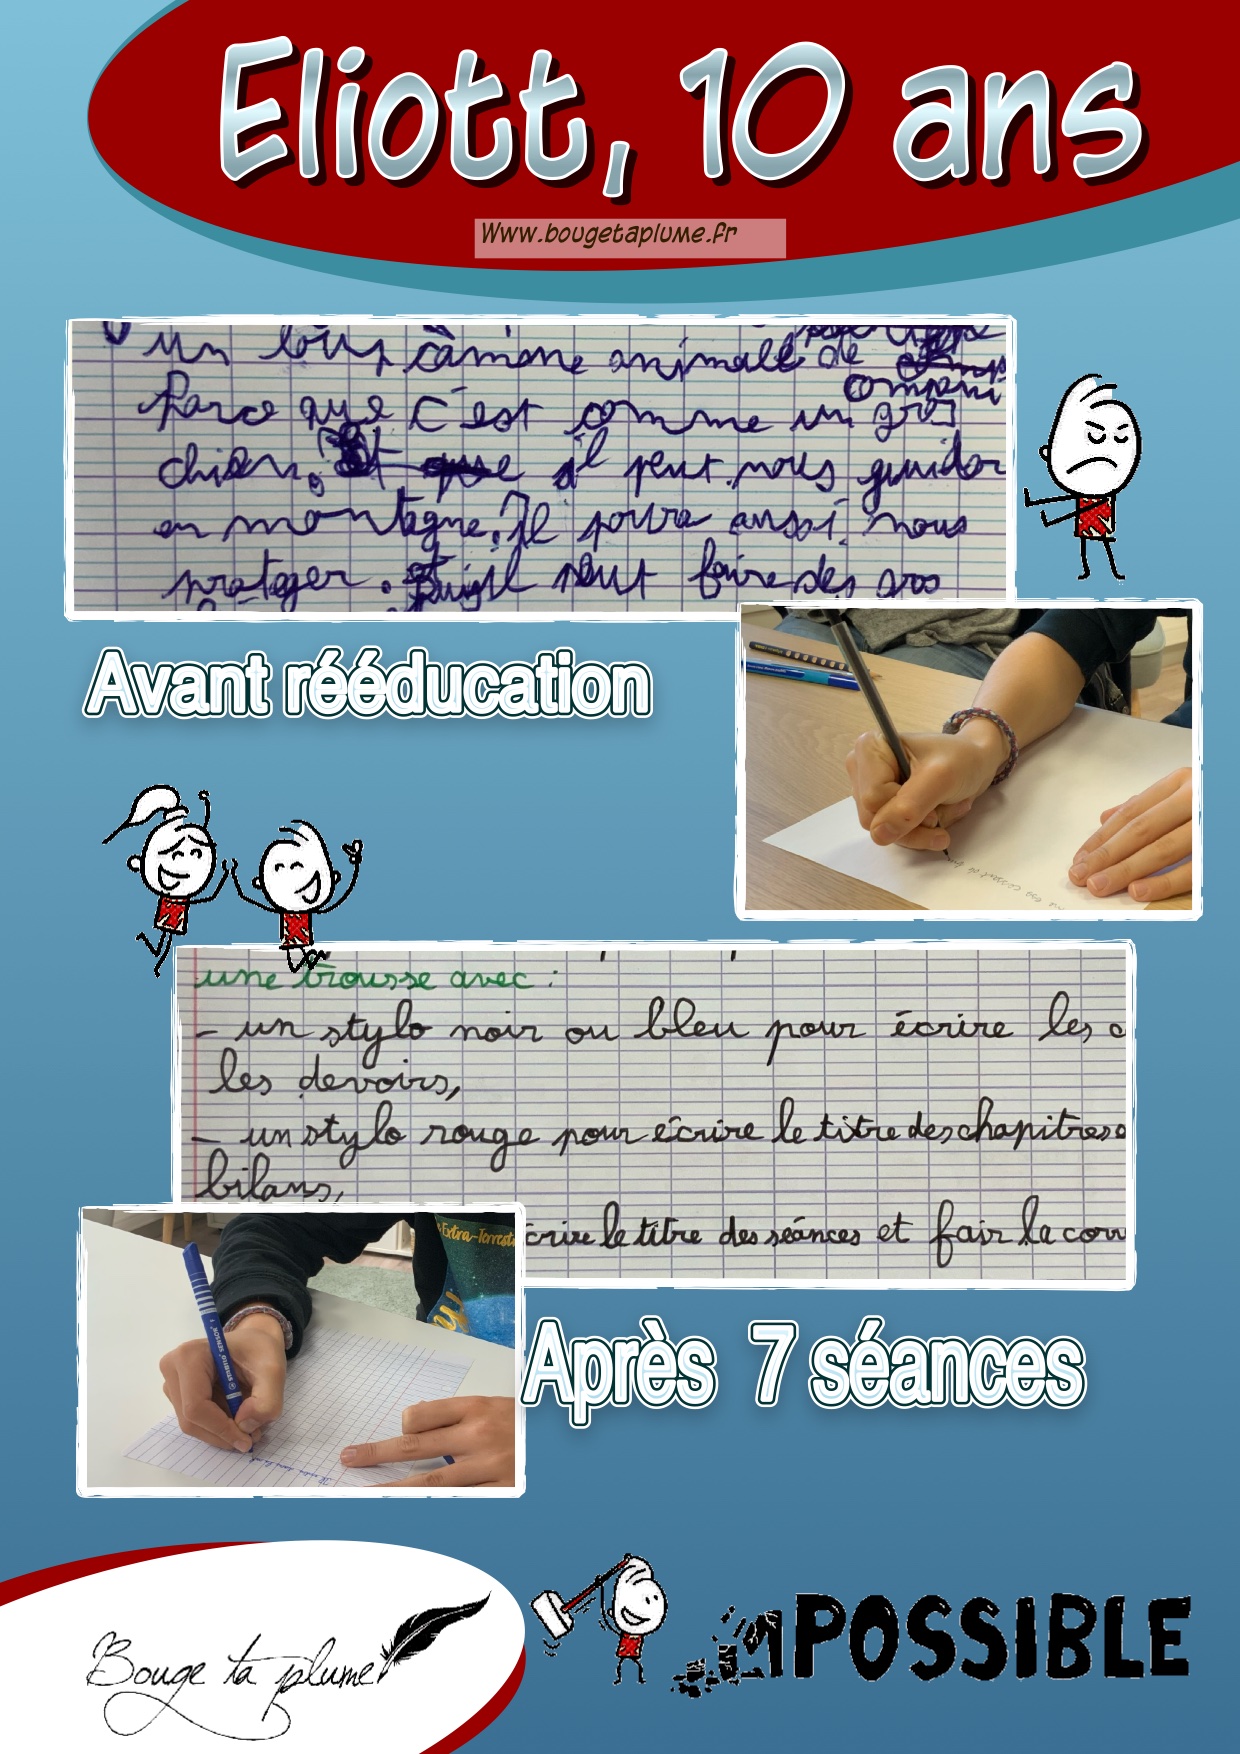 Eliott, 10 ans
Www.bougetaplume.fr
un loup comme animall de
compani
Parce que c'est comme un gros
chien. il peut nous guider
en montagne. Il poura aussi nous
proteger. Puis il peut faire des gros
Avant rééducation
une trousse avec :
- un stylo noir ou bleu pour écrire les c
les devoirs,
- un stylo rouge pour écrire le titre des chapitres
bilans,
crire le titre des séances et fair la corr
Extra-Terrest
STABILO SENSOR
Après 7 séances
Bouge ta plume
POSSIBLE